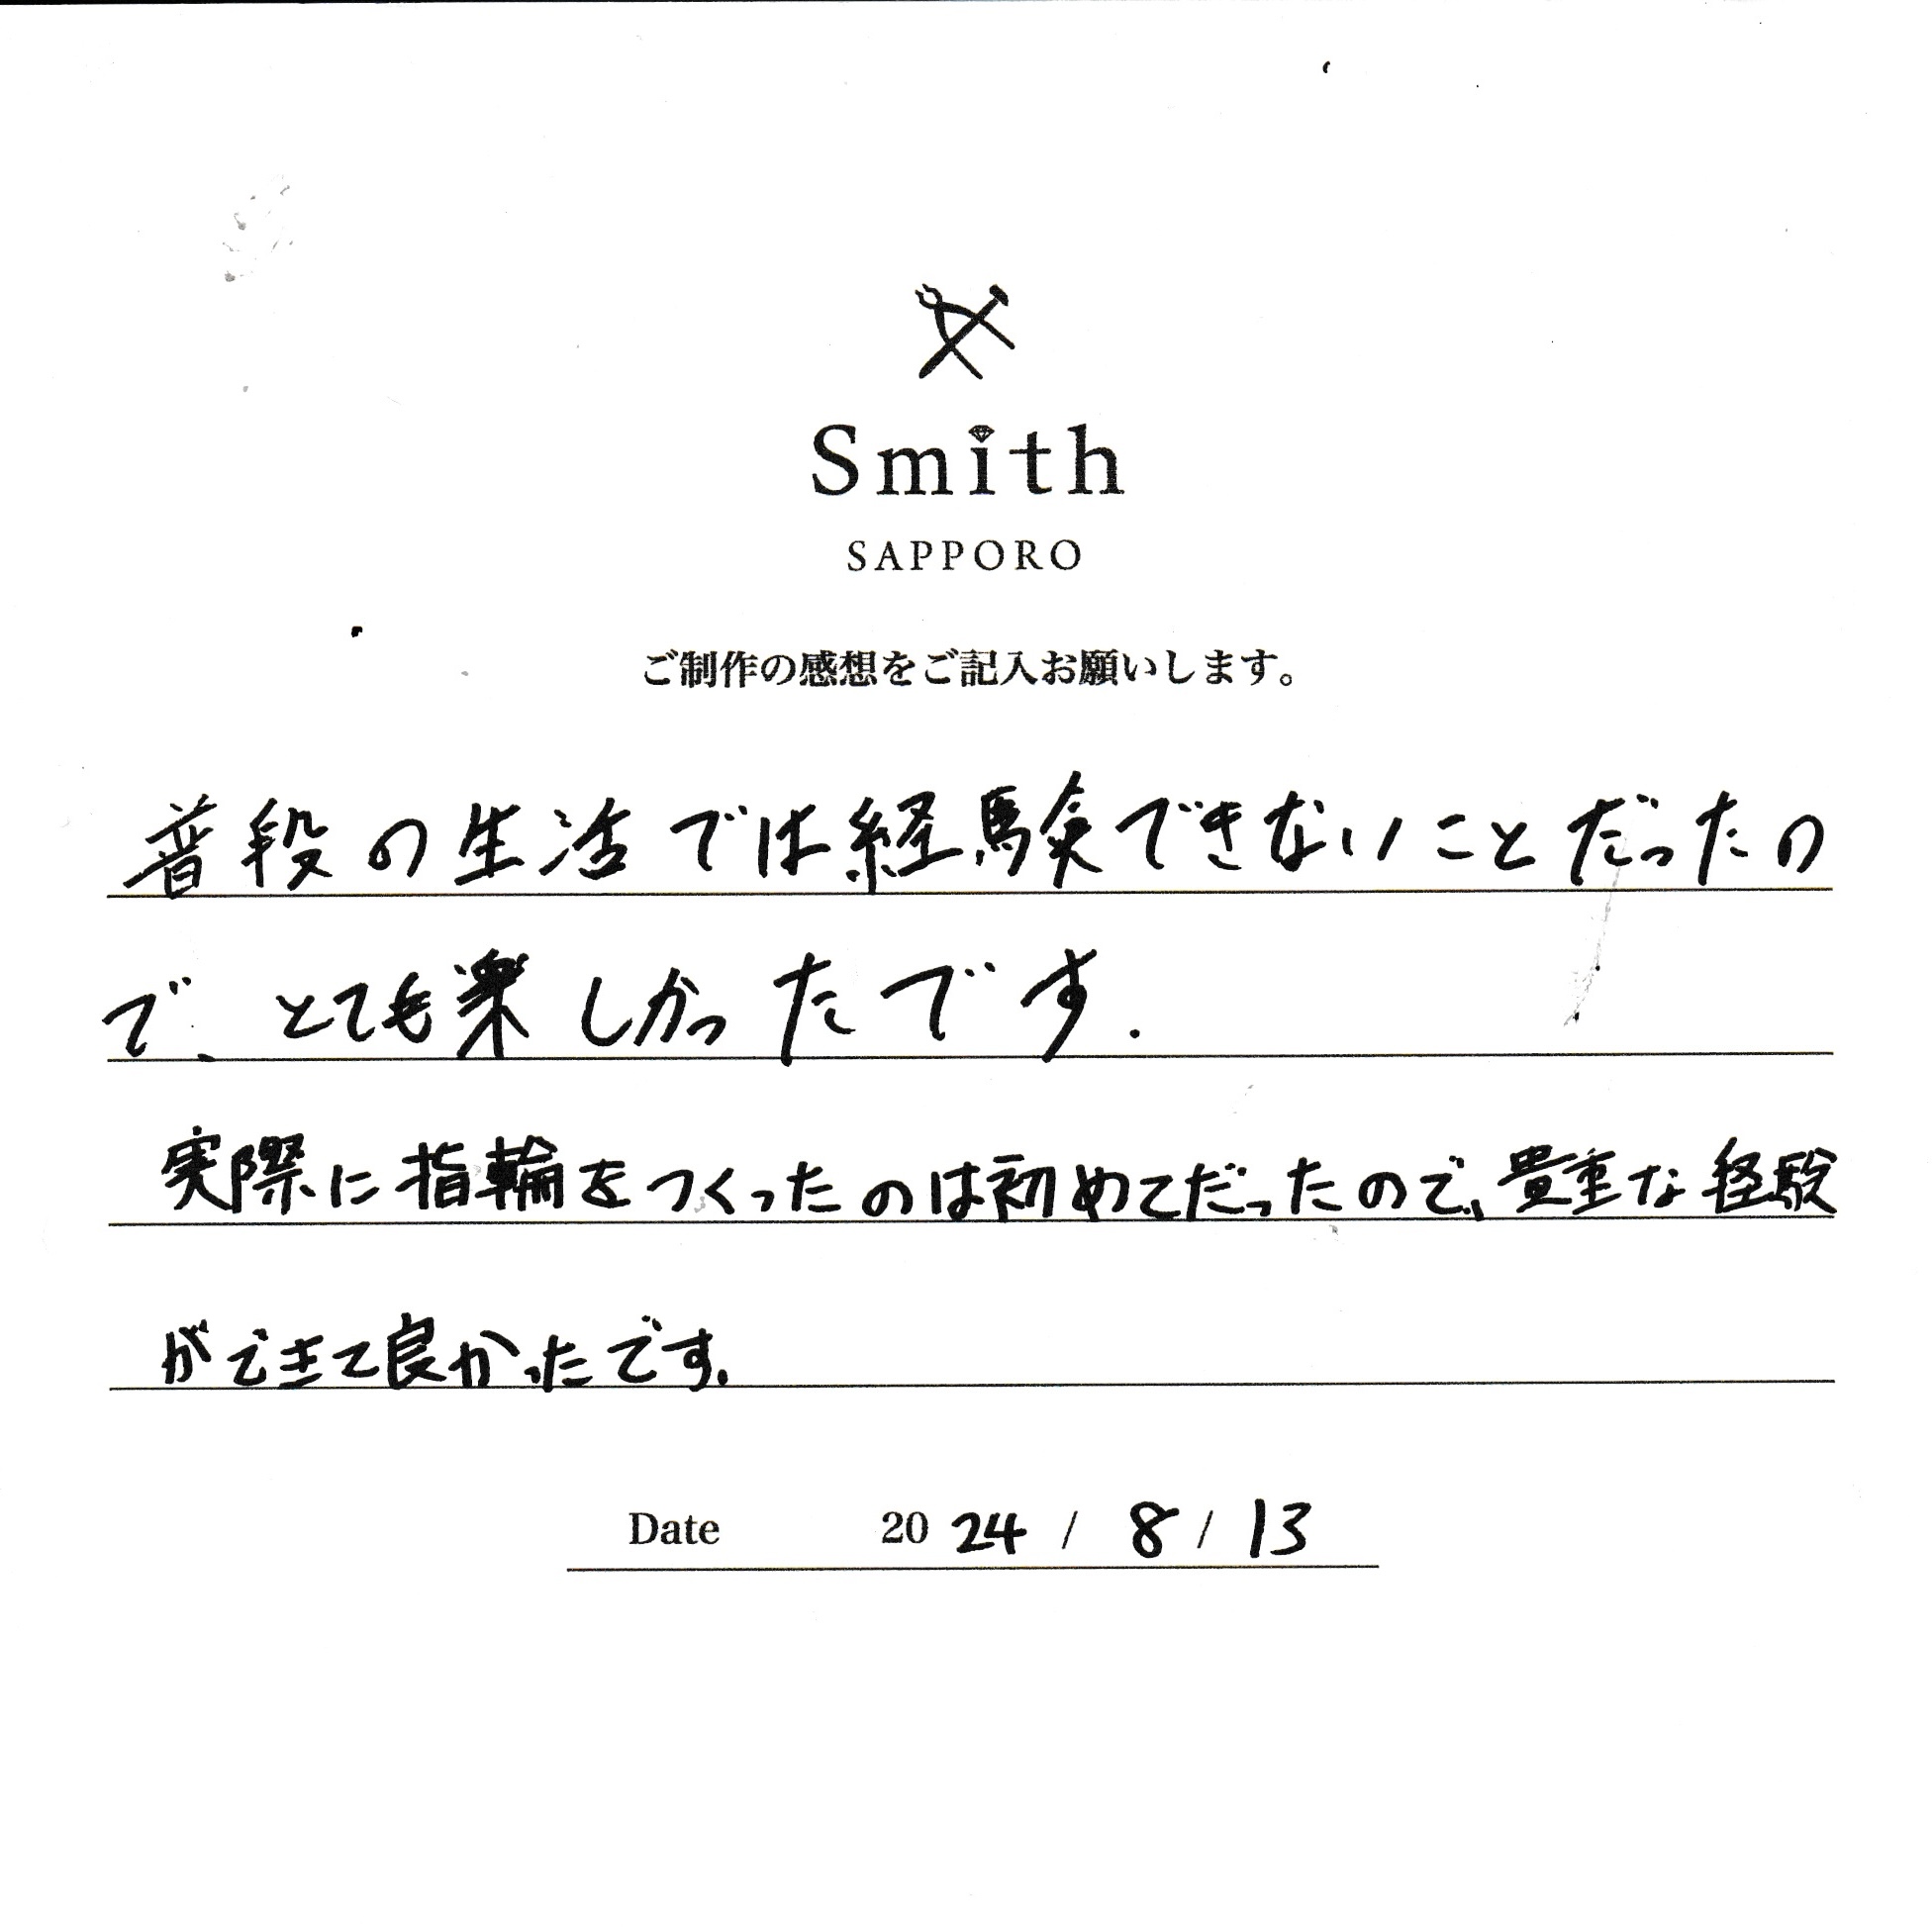 Smith
SAPPORO
ご制作の感想をご記入お願いします。
普段の生活では経験できないことだったの
で、とても楽しかったです.
実際に指輪をつくったのは初めてだったので、貴重な経験
ができて良かったです.
Date 2024 / 8 / 13